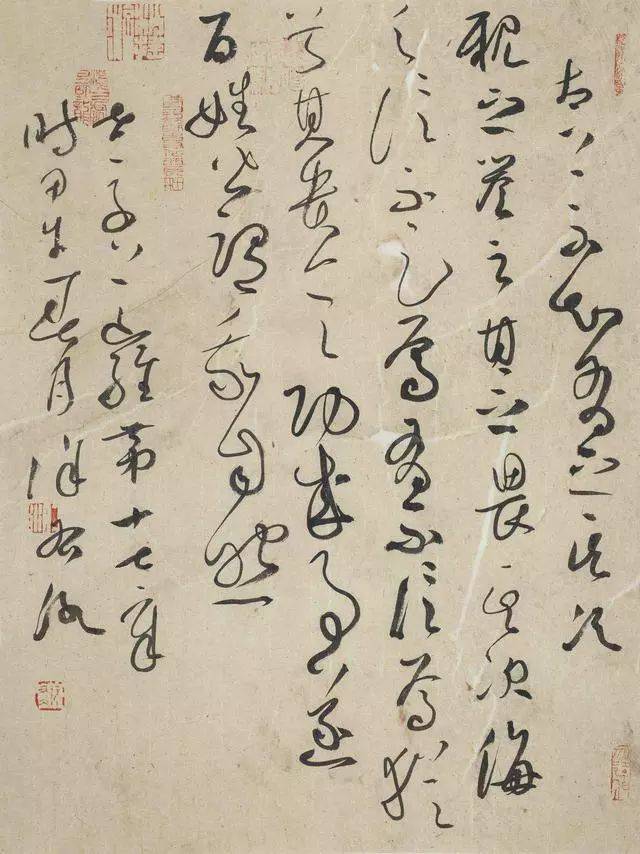 太上不知有之其次
親之譽之其之畏其次侮
之信不足焉有不信焉猶
兮其貴言功成事遂
百姓皆謂我自然
老子第十七章
時甲午春月